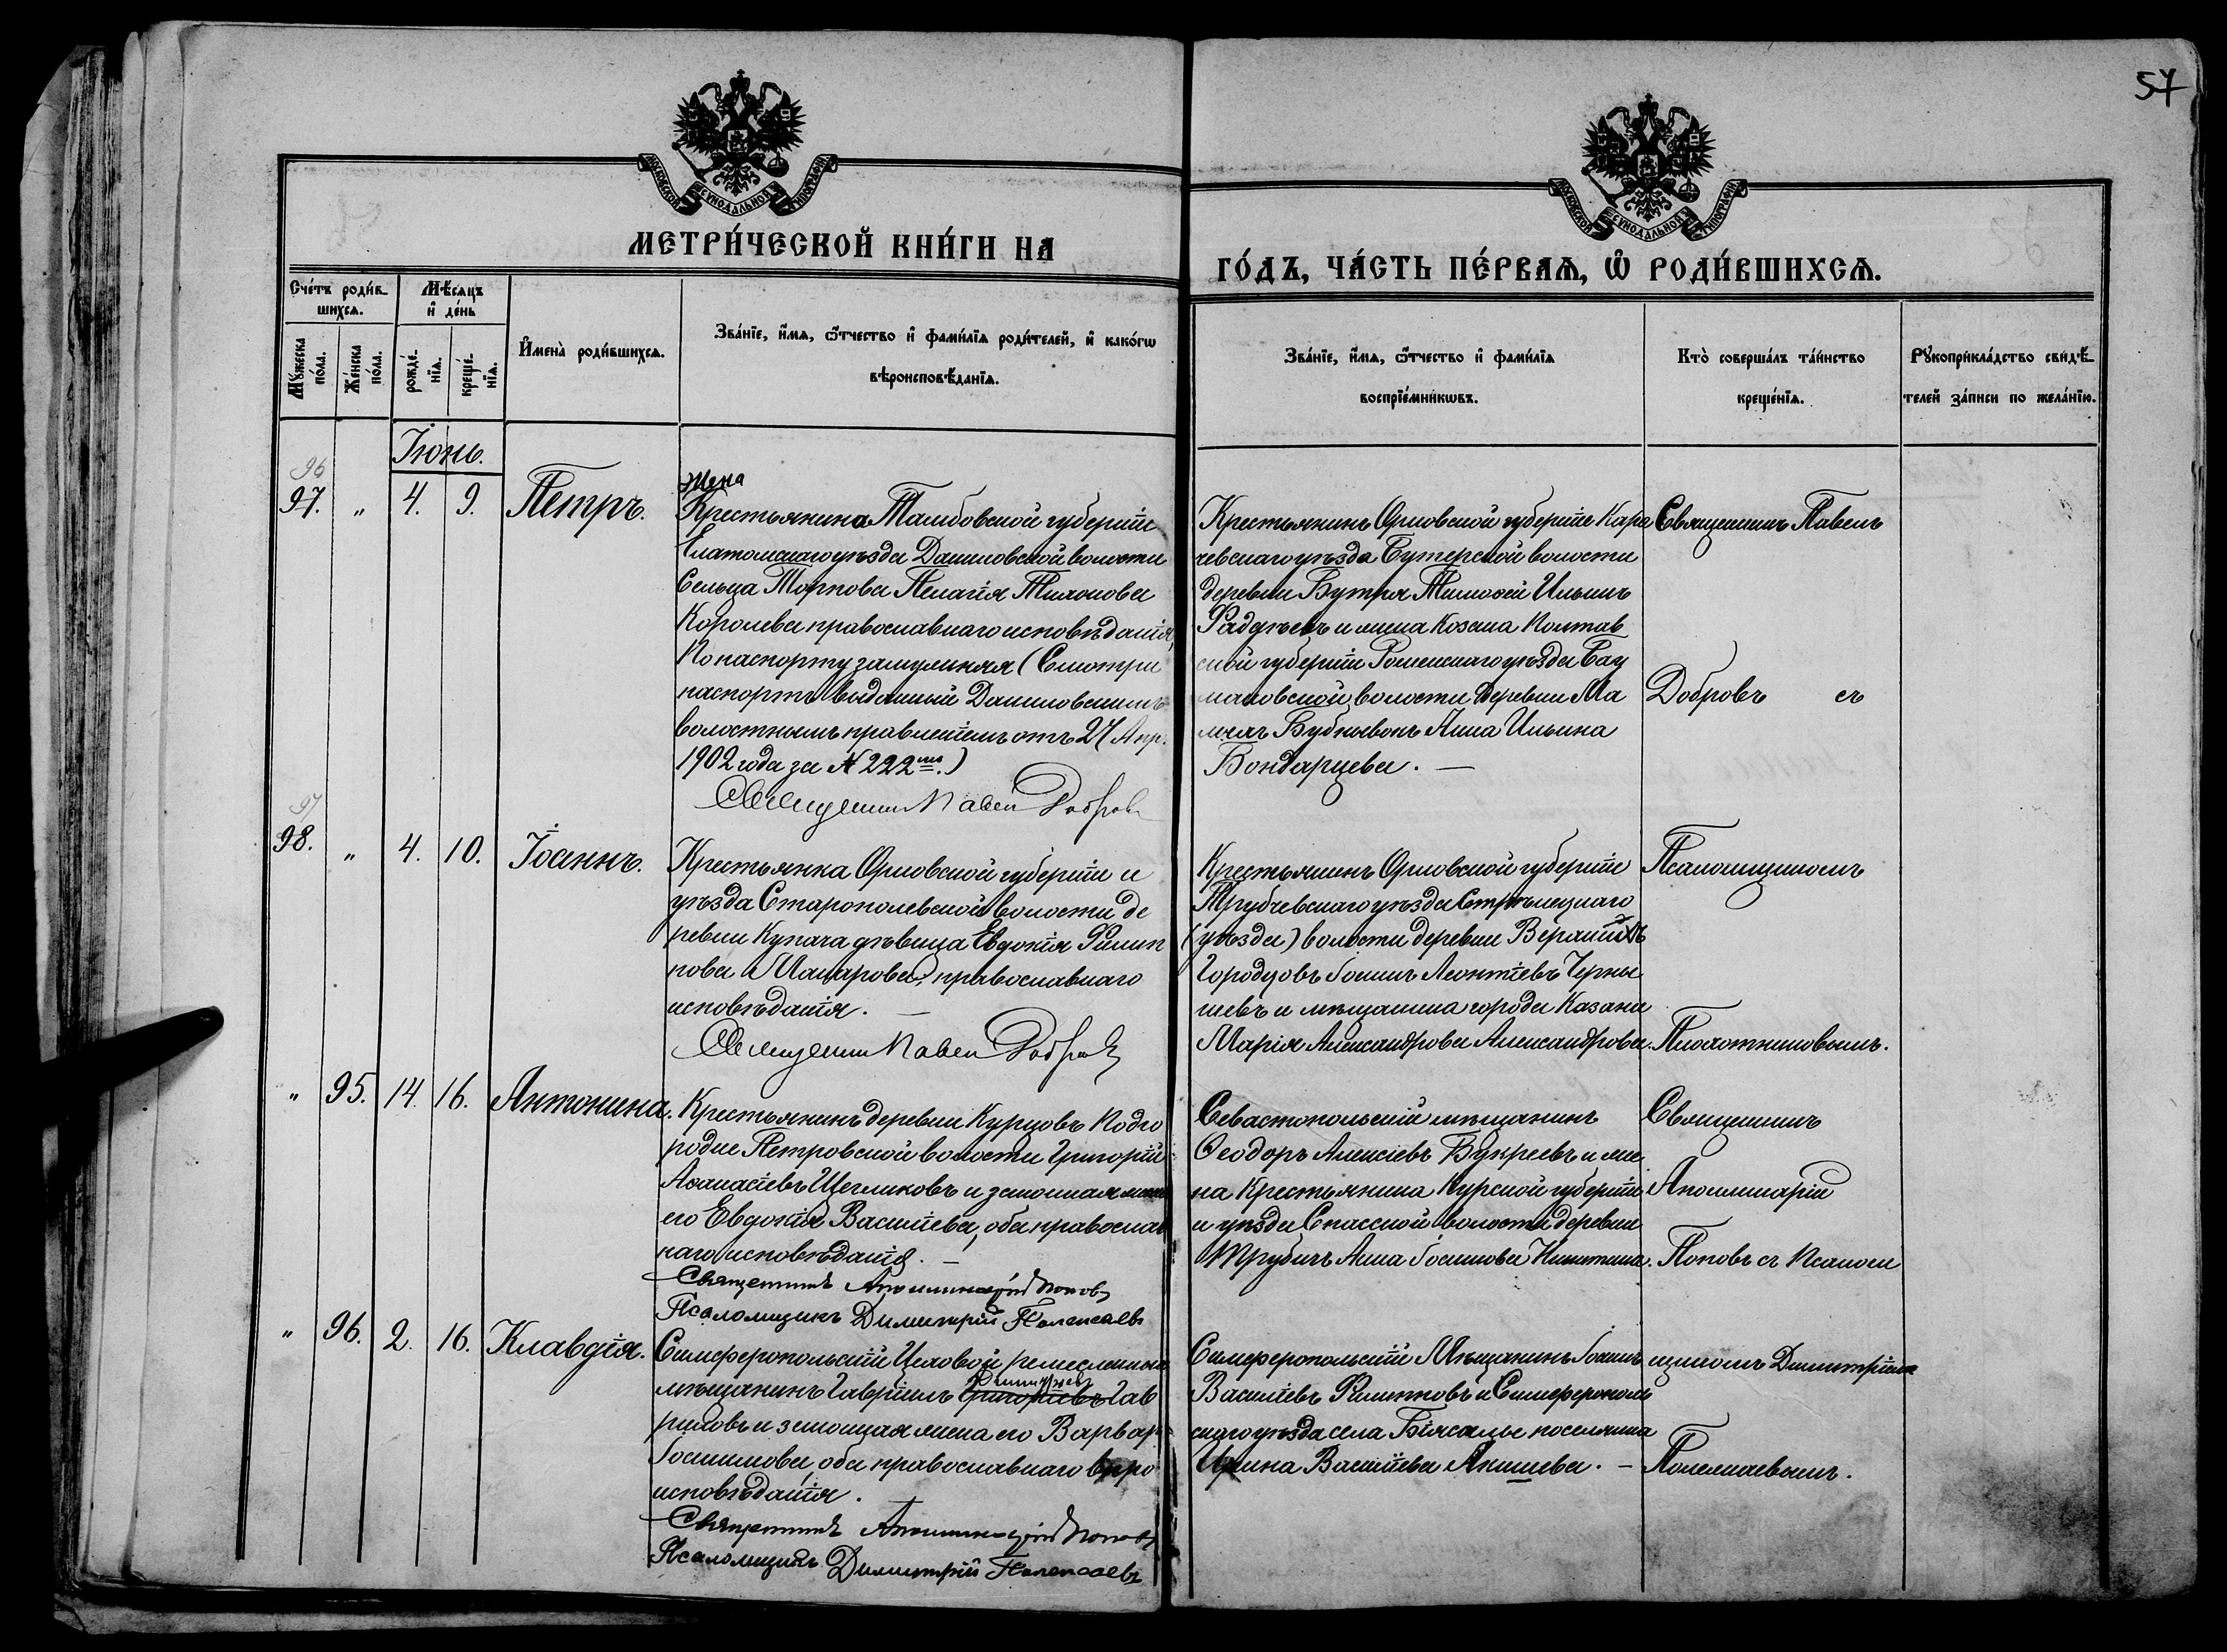 57
МОСКОВСКОЙ СѴНОДАЛЬНОЙ ТИПОГРАФІИ
МОСКОВСКОЙ СѴНОДАЛЬНОЙ ТИПОГРАФІИ
МЕТРИ́ЧЕСКОЙ КНИ́ГИ НА
ГО́ДЪ, ЧА́СТЬ ПЕ́РВАѦ, Ѡ҆ РОДИ́ВШИХСѦ.
Сче́тъ роди́в-
шихсѧ.
Мѣ́сяцъ
и҆ де́нь
Мꙋ́жеска
по́ла.
Же́нска
по́ла.
рожде́-
нїѧ.
креще́-
нїѧ.
И҆мена̀ роди́вшихсѧ.
Зва́нїе, и҆́мѧ, ѻ҆́тчество и҆ фами́лїѧ роди́телей, и҆ како́гѡ
вѣроисповѣ́данїѧ.
Зва́нїе, и҆́мѧ, ѻ҆́тчество и҆ фами́лїѧ
воспрїе́мникѡвъ.
Кто̀ соверша́лъ та́инство
креще́нїѧ.
Рꙋкоприкла́дство свидѣ́-
телей за́писи по жела́нїю.
Іюнь.
96
97. " 4. 9. Петръ.
жена
Крестьянина Тамбовской губерніи
Елатомскаго уѣзда Даниловской волости
Сельца Торпова Пелагія Тихонова
Королева православнаго исповѣданія,
По паспорту замужняя (Смотри
паспортъ выданный Даниловскимъ
волостнымъ правленіемъ отъ 27 Апр.
1902 года за № 222мъ.)
Священникъ Павелъ Добровъ
Крестьянинъ Орловской губерніи Кара
чевскаго уѣзда Бутерской волости
деревни Бутря Тимоѳей Ильинъ
Фадѣевъ и жена Козака Полтав
ской губерніи Роменскаго уѣзда
мановской волости деревни Ма
Анна Ильина
Бондарцева. —
Священникъ Павелъ
Добровъ съ
97
98. " 4. 10. Іоаннъ.
Крестьянка Орловской губерніи и
уѣзда Старопольской волости де
ревни Купача дѣвица Евдокія Филип
пова Макарова, православнаго
исповѣданія. —
Священникъ Павелъ Добровъ
Крестьянинъ Орловской губерніи
Трубчевскаго уѣзда Стрѣлецкаго
(уѣзда) волости деревни
Городцовъ Іоаннъ Леонтіевъ Черны
шевъ и мѣщанка города Казани
Марія Александрова Александрова.
Псаломщикомъ
Плохотниковымъ.
" 95. 14. 16. Антонина.
Крестьянинъ деревни Курцовъ Подго
родне Петровской волости Григорій
Аѳанасіевъ Щегликовъ и законная жена
его Евдокія Васильева, оба православ
наго исповѣданія. —
Священникъ Аполлинарій Поповъ
Псаломщикъ Димитрій Полежаевъ
Севастопольскій мѣщанинъ
Ѳеодоръ Алексіевъ Букреевъ и же
на Крестьянина Курской губерніи
и уѣзда Спасской волости деревни
Трубичъ Анна Іоакимова Никитина.
Священникъ
Аполлинарій
Поповъ съ Псалом
" 96. 2. 16. Клавдія.
Симферопольскій Цеховой ремесленный
мѣщанинъ Гавріилъ Григоріевъ Гав
Димитріевъ
риловъ и законная жена его Варвара
Іоакимова, оба православнаго вѣро
исповѣданія.
Священникъ Аполлинарій Поповъ
Псаломщикъ Димитрій Полежаевъ
Симферопольскій Мѣщанинъ Іоаннъ
Васильевъ Филипповъ и Симферополь
скаго уѣзда села Біясалы поселянка
Ирина Васильева Акишева. —
щикомъ Димитріемъ
Полежаевымъ.